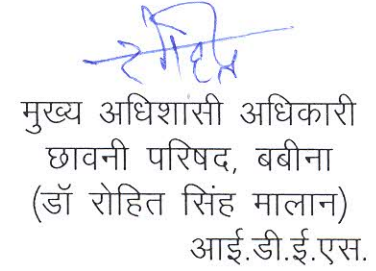 रोहित
मुख्य अधिशासी अधिकारी
छावनी परिषद, बबीना
(डॉ रोहित सिंह मालान)
आई.डी.ई.एस.